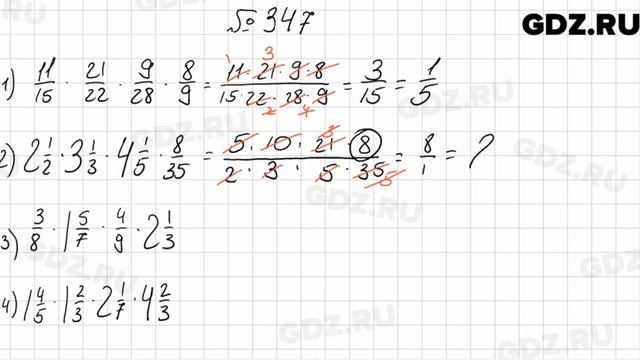 № 347
GDZ.RU
1) 11/15 · 21/22 · 9/28 · 8/9 = 11·21·9·8 / 15·22·28·9 = 3/15 = 1/5
1 3
2 4
2) 2 1/2 · 3 1/3 · 4 1/5 · 8/35 = 5·10·21·8 / 2·3·5·35 = 8/1 = 8
3) 3/8 · 1 5/7 · 4/9 · 2 1/3
4) 1 4/5 · 1 2/3 · 2 1/7 · 4 2/3
GDZ.RU
GDZ.RU
GDZ.RU
GDZ.RU
GDZ.RU